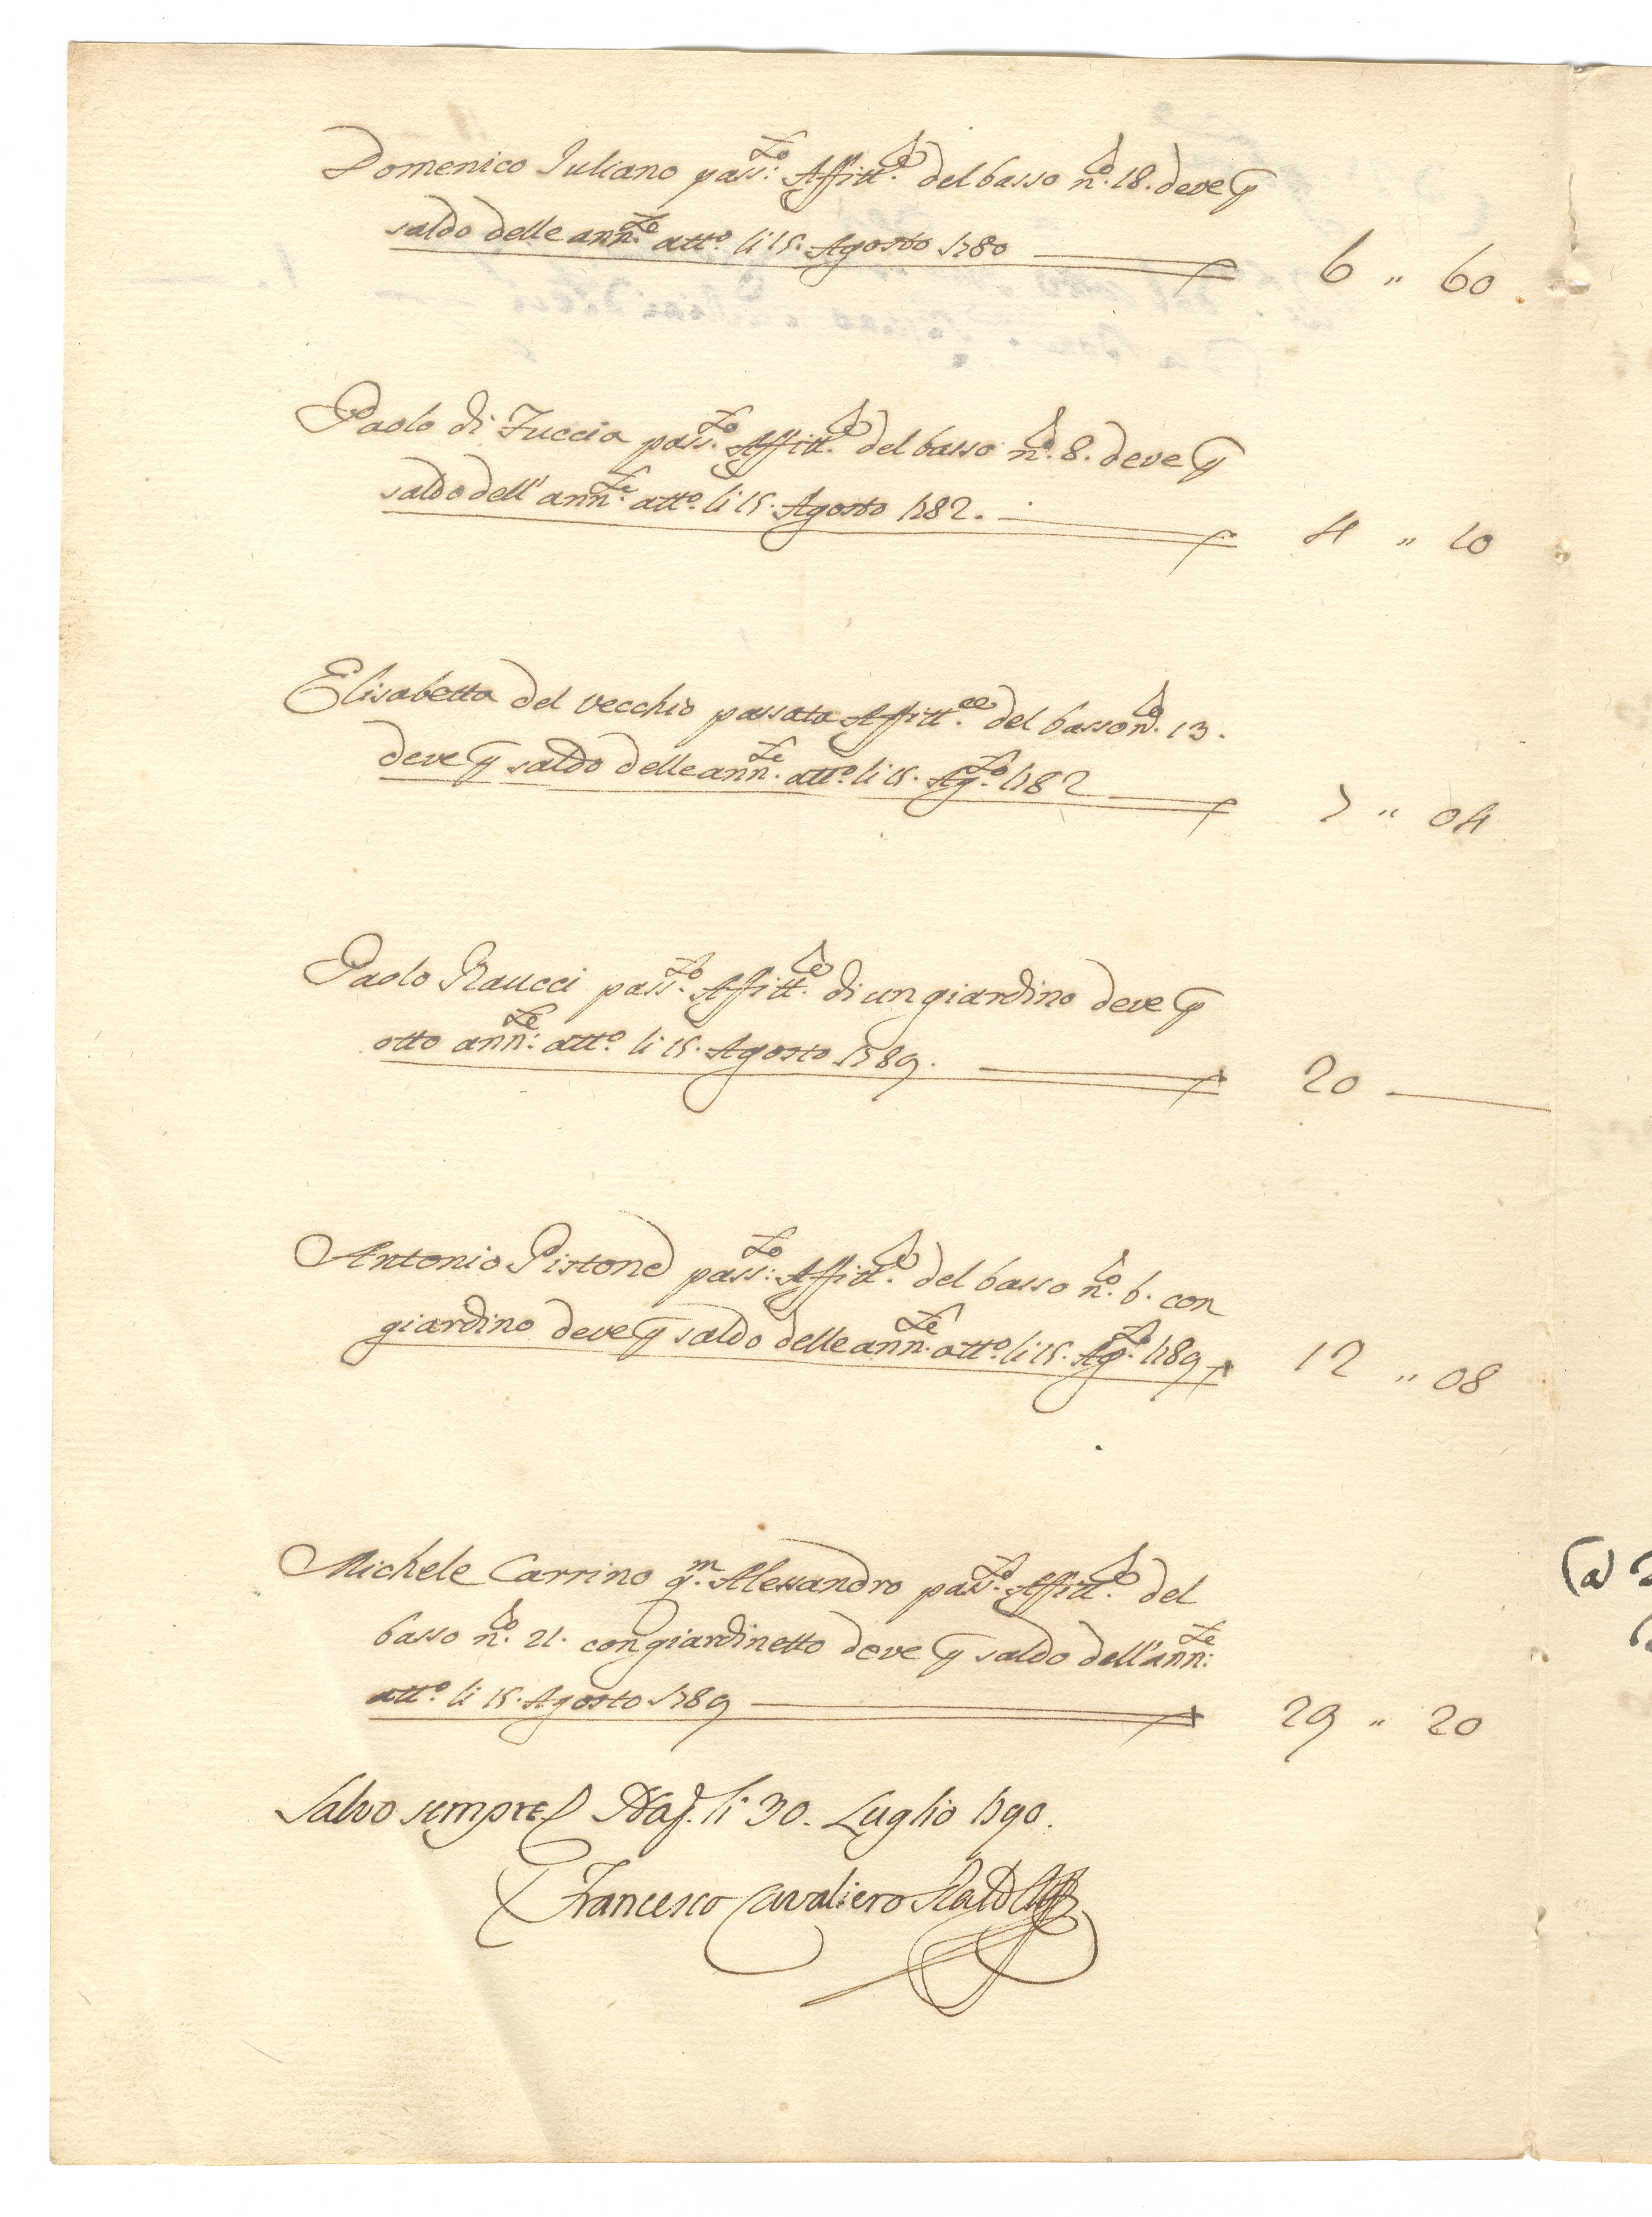 Domenico Iuliano pass:to Affitt.re del basso n.ro 18. deve p
saldo delle ann.te att.o li 15. Agosto 1780 6 " 60
Paolo di Fuccia pass.to Affitt.re del basso n.ro 8. deve p
saldo dell' ann.te att.o li 15. Agosto 1782. 4 " 10
Elisabetta del vecchio passata Affitt.ce del basso n.ro 13.
deve p saldo delle ann.te att.o li 15. Ag.to 1782 7 " 04
Paolo Raucci pass.to Affitt.re di un giardino deve p
otto ann:te att.o li 15. Agosto 1789. 20 —
Antonio Pistone pass:to Affitt.re del basso n.ro 6. con
giardino deve p saldo delle ann.te att.o li 15. Ag.to 1789 12 " 08
Michele Carrino q.m Alessandro pass.to Affitt.re del
basso n.ro 21. con giardinetto deve p saldo dell'ann:te
att.o li 15. Agosto 1789 29 " 20
Salvo sempre li 30. Luglio 1790.
Francesco Cavaliero
(a)